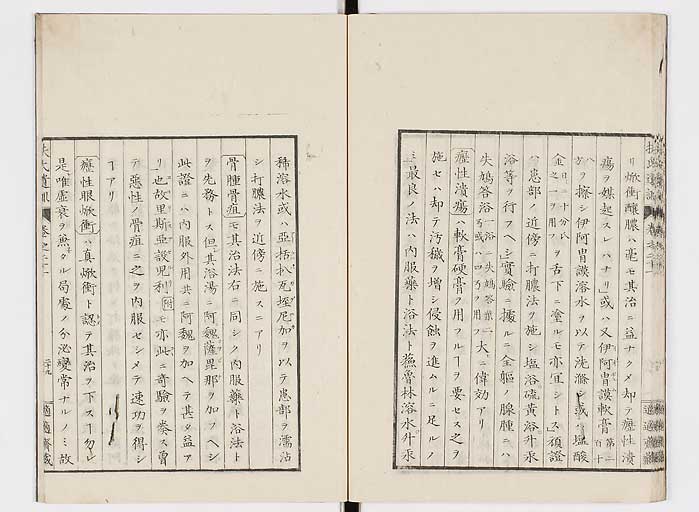 リ焮衝釀膿ハ毫モ其治ニ益ナクメ却テ癧性潰
瘍ヲ媒起スレハナリ」或ハ又伊阿胄謨軟膏第二百十
ヲ擦シ伊阿胄謨溶水ヲ以テ洗滌シ或ハ塩酸
金日ニ十分氏之一ヲ用フヲ舌下ニ塗ルモ亦宜シトス須證
ハ患部ノ近傍ニ打膿法ヲ施シ塩浴硫黄浴升汞
浴等ヲ行フヘシ」實驗ニ據ルニ全軀ノ腺腫ニハ
失鳩答浴大ニ偉効アリ
癧性潰瘍ハ軟膏硬膏ヲ用フルヿヲ要セス之ヲ
施セハ却テ汚穢ヲ増シ侵蝕ヲ進ムルニ足ルノ
ミ最良ノ法ハ内服藥ト浴法ト蕪魯林溶水升汞
稀溶水或ハ亞括扒瓦垤尼加ヲ以テ患部ヲ濡沾
シ打膿法ヲ近傍ニ施スニアリ
骨腫骨疽モ其治法右ニ同シク内服藥ト浴法ト
ヲ先務トス但其浴湯ニ阿魏薩毘那ヲ加フヘシ
此證ニハ内服外用共ニ阿魏ヲ加ヘテ甚タ益ア
リ也故里斯亞設児利附モ亦此ニ奇驗ヲ奏ス曽
テ惡性ノ骨疽ニ之ヲ内服セシメテ速功ヲ得シ
ヿアリ
癧性眼焮衝ハ真焮衝ト認テ其治ヲ下スヿ勿レ
是唯虚衰ヲ兼タル局處ノ分泌變常ナルノミ故
扶氏遺訓 卷之二十 二十九 適適齋藏